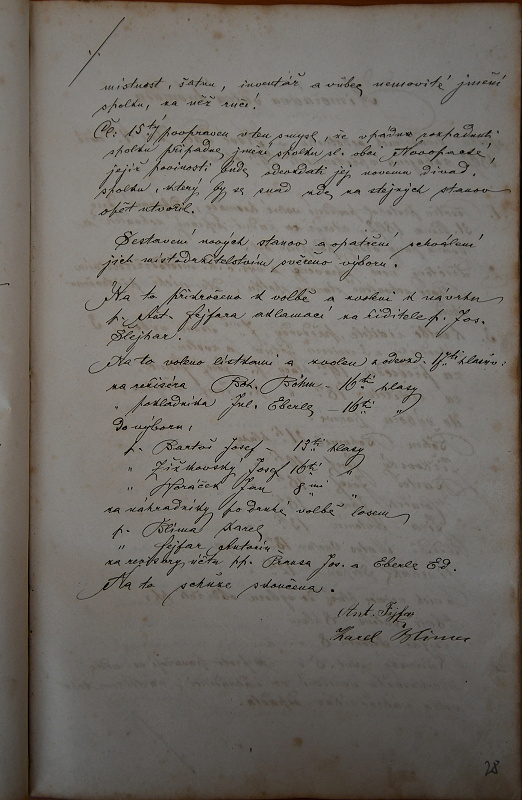 místnost, šatnu, inventář a vůbec nemovité jmění
spolku, za něž ručí.
Čl. 15tý poopraven v ten smysl, že v pádu rozpadnutí
spolku připadne jmění spolku sl. obci Novopacké,
jejíž povinností bude odevzdati jej novému divad.
spolku, který by se snad zde na stejných stanov
opět utvořil.
Sestavení nových stanov a opatření schválení
jich místodržitelstvím svěřeno výboru.
Na to přikročeno k volbě a zvolen k návrhu
p. Ant. Fejfara aklamací za ředitele p. Jos.
Šlejhar.
Na to voleno lístkami a zvolen z odevzd. 17ti hlasův:
za režiséra Boh. Böhm – 16ti hlasy
" pokladníka Jul. Eberle – 16ti "
Do výboru:
p. Bartoš Josef – 13ti hlasy
" Žižkovský Josef 16ti "
" Horáček Jan 8mi "
za náhradníky po druhé volbě losem
p. Klima Karel
" Fejfar Antonín
za revisory účtů pp. Prausa Jos. a Eberle Ed.
Na to schůze skončena.
Ant. Fejfar
Karel Klima
28